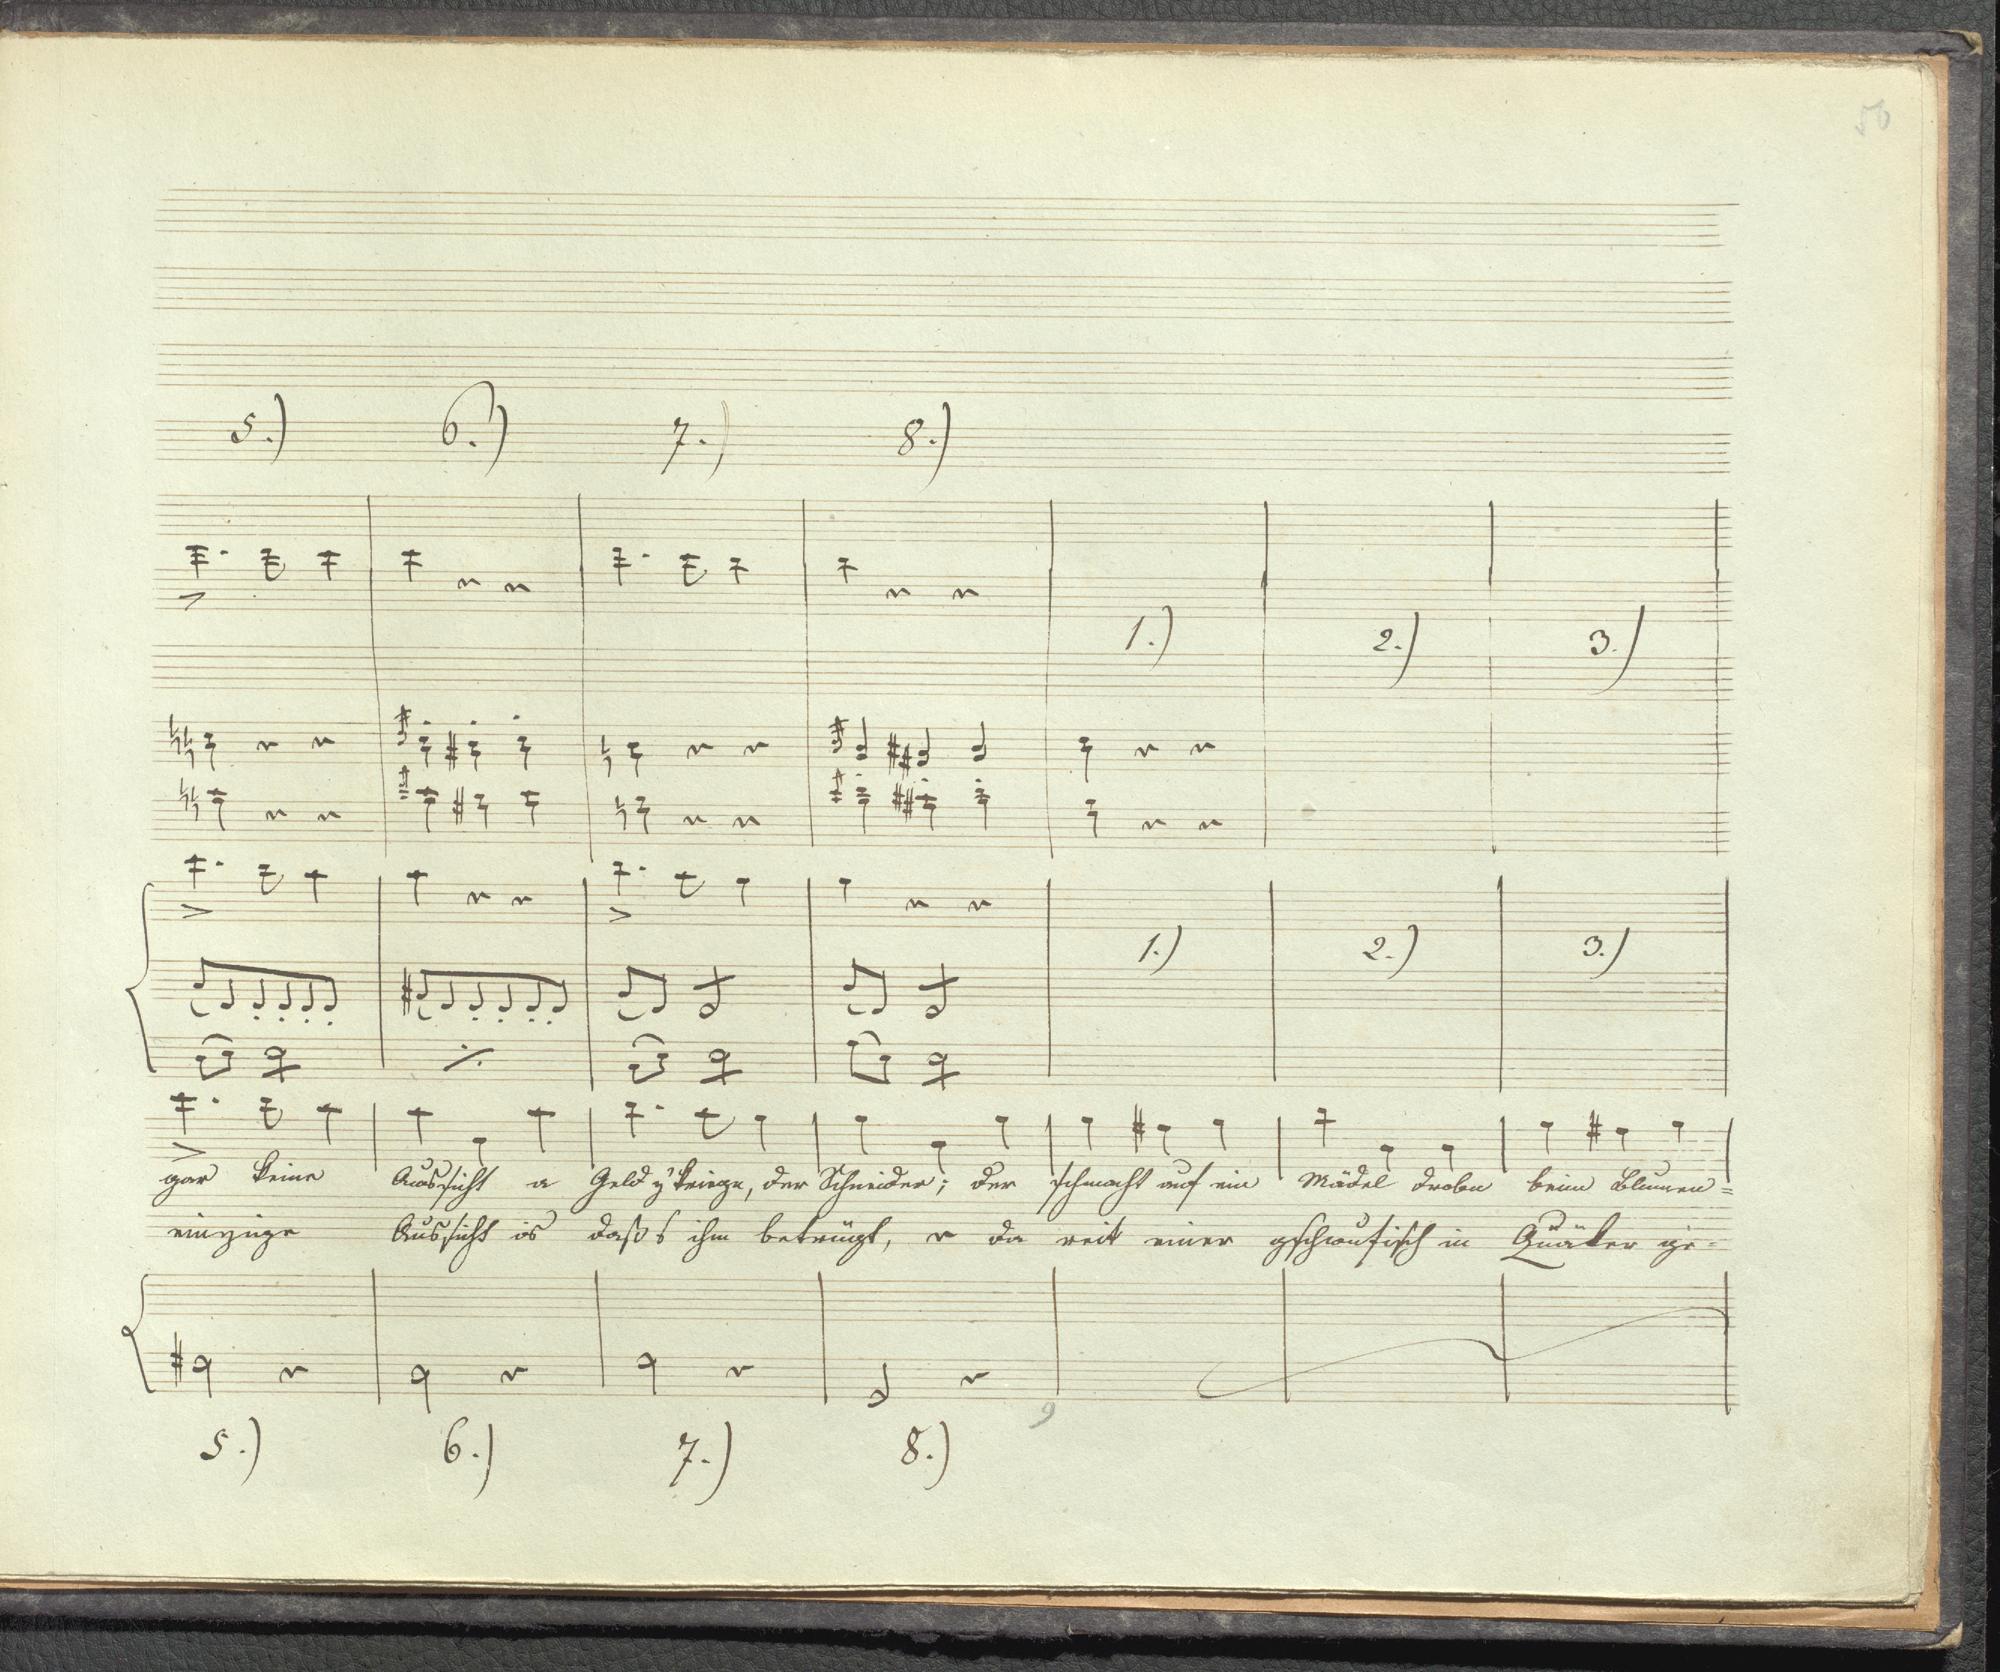 50
5.) 6.) 7.) 8.)
1.) 2.) 3.)
1.) 2.) 3.)
gar keine Aussicht a Geld z'kriege, der Schneider; der schmacht auf ein Mädel drobn beim Blumen=
einzige Aussicht is daß s ihm betrügt, da reit einer gschaufisch in Quäker ge-
9
5.) 6.) 7.) 8.)